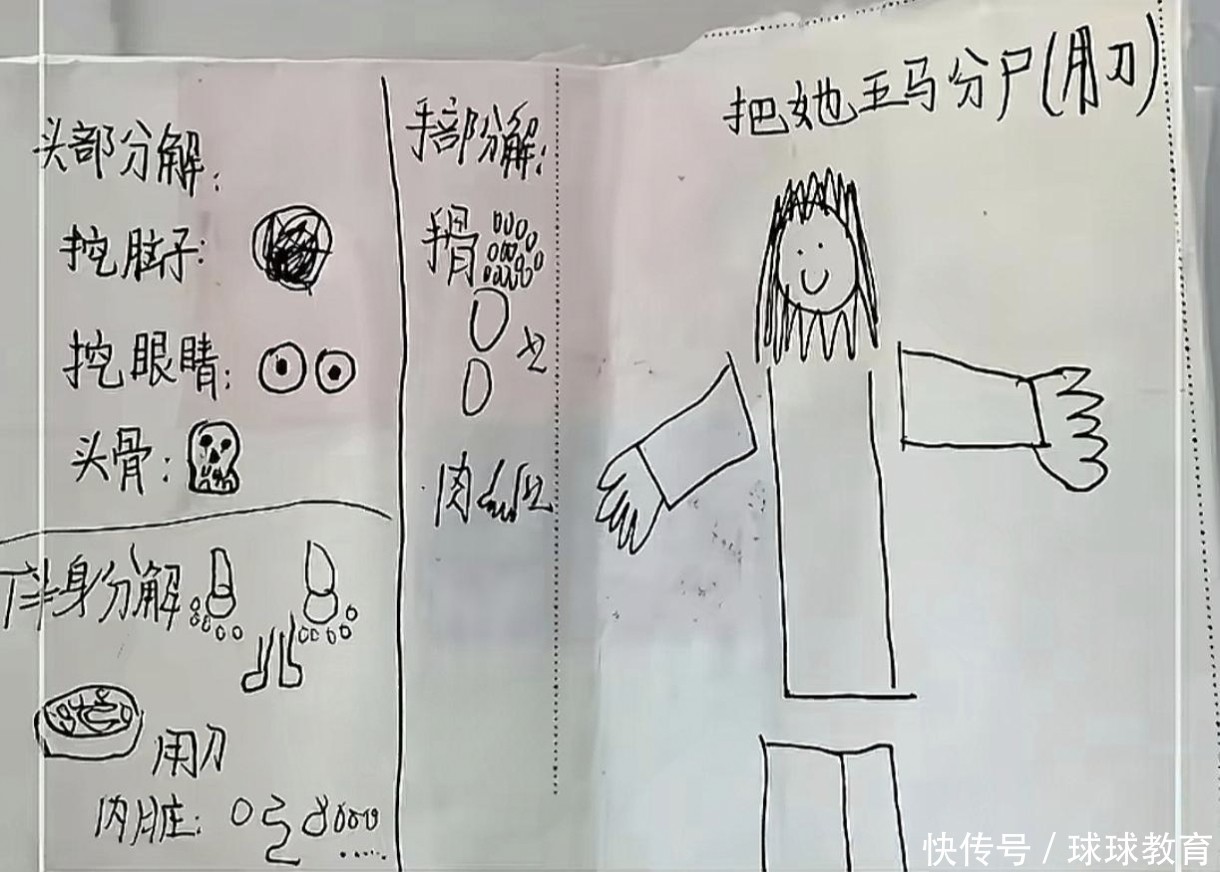 把她五马分尸(用刀)
头部分解:
挖脑子:
挖眼睛:
头骨:
手部分解:
手骨
肉
下半身分解
用刀
内脏:
快传号 / 球球教育